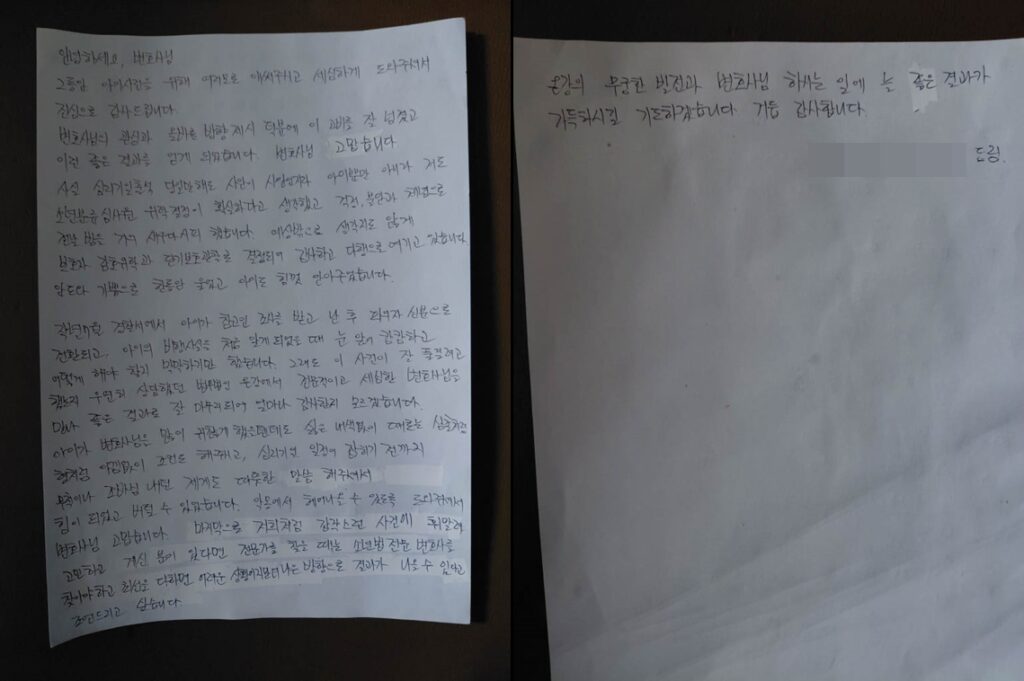 안녕하세요, 변호사님
그동안 아이사건을 위해 여러모로 애써주시고 세심하게 도와주셔서
진심으로 감사드립니다.
변호사님의 관심과 올바른 방향 제시 덕분에 이 고비를 잘 넘겼고
이런 좋은 결과를 얻게 되었습니다. 변호사님 고맙습니다
사실 심리기일출석 당일만해도 사안이 사안인지라 아이뿐만 아니라 저도
소년분류심사원 위탁결정이 확실하다고 생각했고 걱정, 불안과 체념으로
전날 밤은 거의 새우다시피 했습니다. 예상밖으로 생각지도 않게
보호자 감호위탁과 단기보호관찰로 결정되어 감사하고 다행으로 여기고 있습니다.
아이도 힘껏 안아주었습니다.
경찰서에서 아이가 참고인 조사를 받고 난 후 피의자 신분으로
전환되고, 아이의 비행사실을 처음 알게 되었을 때 눈 앞이 캄캄하고
어떻게 해야 할지 막막하기만 했습니다. 그래도 이 사건이 잘 풀리려고
했는지 우연히 상담했던 법무법인 온강에서 전문적이고 세심한 변호사님을
만나 좋은 결과로 잘 마무리되어 얼마나 감사한지 모르겠습니다.
아이가 변호사님을 많이 귀찮게 했을텐데도 싫은 내색없이 때로는 삼촌처럼
형처럼 아낌없이 조언도 해주시고, 심리기일 일정이 잡히기 전까지
우울이나 조바심 내던 제게도 따뜻한 말씀 해주셔서
힘이 되었고 버틸 수 있었습니다. 악몽에서 헤어나올 수 있도록 도와주셔서
변호사님 고맙습니다. 마지막으로 저희처럼 갑작스런 사건에 휘말려
고민하고 계신 분이 있다면 전문가를 찾을 때는 소년법 전문 변호사를
찾아야하고 최선을 다하면 어려운 상황이지만 더 나은 방향으로 결과가 나올 수 있다고
조언드리고 싶습니다.
온강의 무궁한 발전과 변호사님 하시는 일에 늘 좋은 결과가
가득하시길 기도하겠습니다. 거듭 감사합니다.
드림.